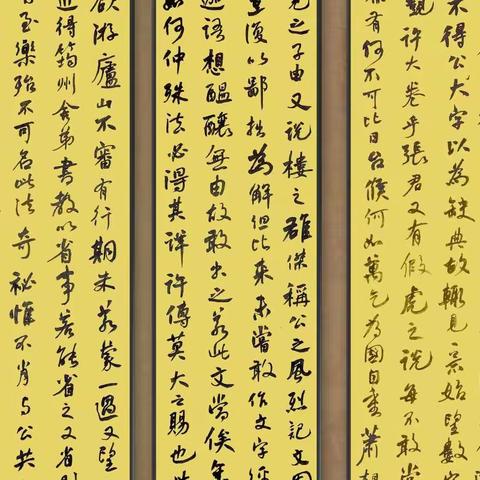 不得公大字以為缺典故輙見示始望數字
觀許大卷乎張君又有假虎之說每不敢當
有何不可比日台候何如萬乞為國自重蕭朝
見之子由又說樓之雄傑稱公之風烈記文固
宜復以鄙拙為解但比來未嘗敢作文字
語想醞釀無由故敢出之若此文當俟年
如何仲殊法必得其詳許傳莫大之賜也此
欲游廬山不審有行期未若蒙一過又望
近得筠州舍弟書教以省事若能省之又省則
至樂殆不可名此法奇祕惟不肖与公共